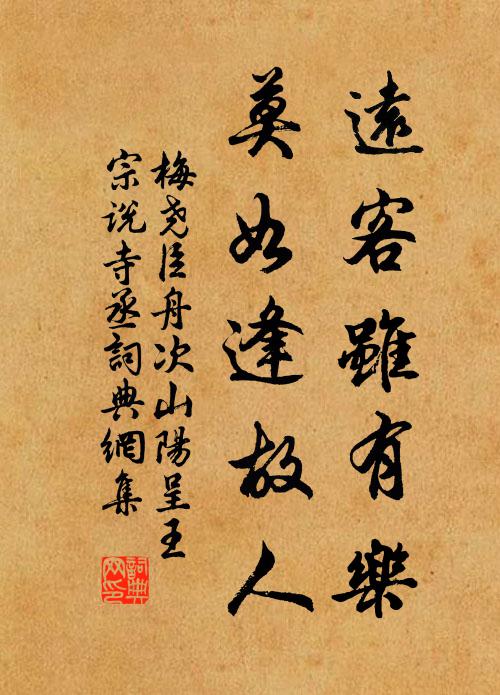 遠客雖有樂
莫如逢故人
梅堯臣舟次山陽呈王
宗說寺丞詞典網集
詞典
网印